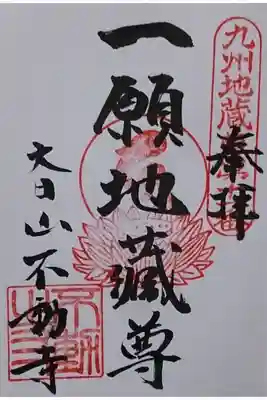 奉拝
一願地蔵尊
大日山不動寺
九州地蔵